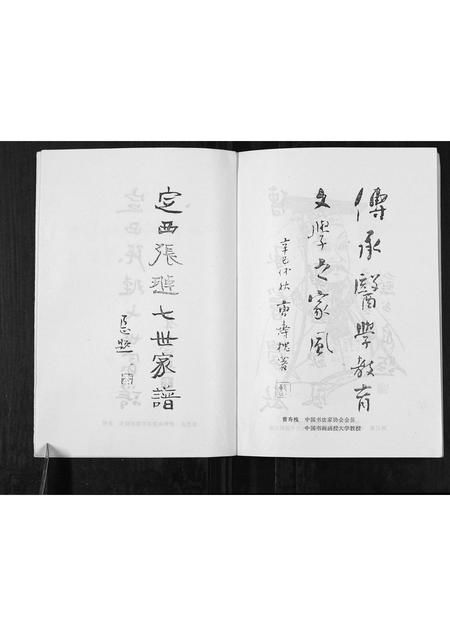 傳承醫學教育
文學之家風
辛巳仲秋 曹寿槐書
曹寿槐 中国书法家协会会员
中国书画函授大学教授
定西張璡七世家譜